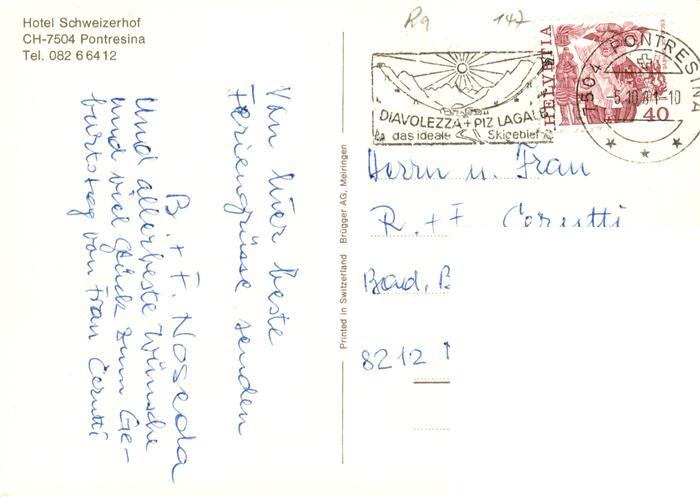 Hotel Schweizerhof
CH-7504 Pontresina
Tel. 082 6 64 12
Von hier beste
Feriengrüsse senden
B. + F. Noseda
Und allerbeste Wünsche
und viel Glück zum Ge-
burtstag von Frau Cerutti
Printed in Switzerland Brügger AG, Meiringen
Rg 147
DIAVOLEZZA + PIZ LAGALB
das ideale Skigebiet
HELVETIA
40
7504 PONTRESINA
-5.10.81-10
Herrn u. Frau
R. + F. Cerutti
Bad.
8212